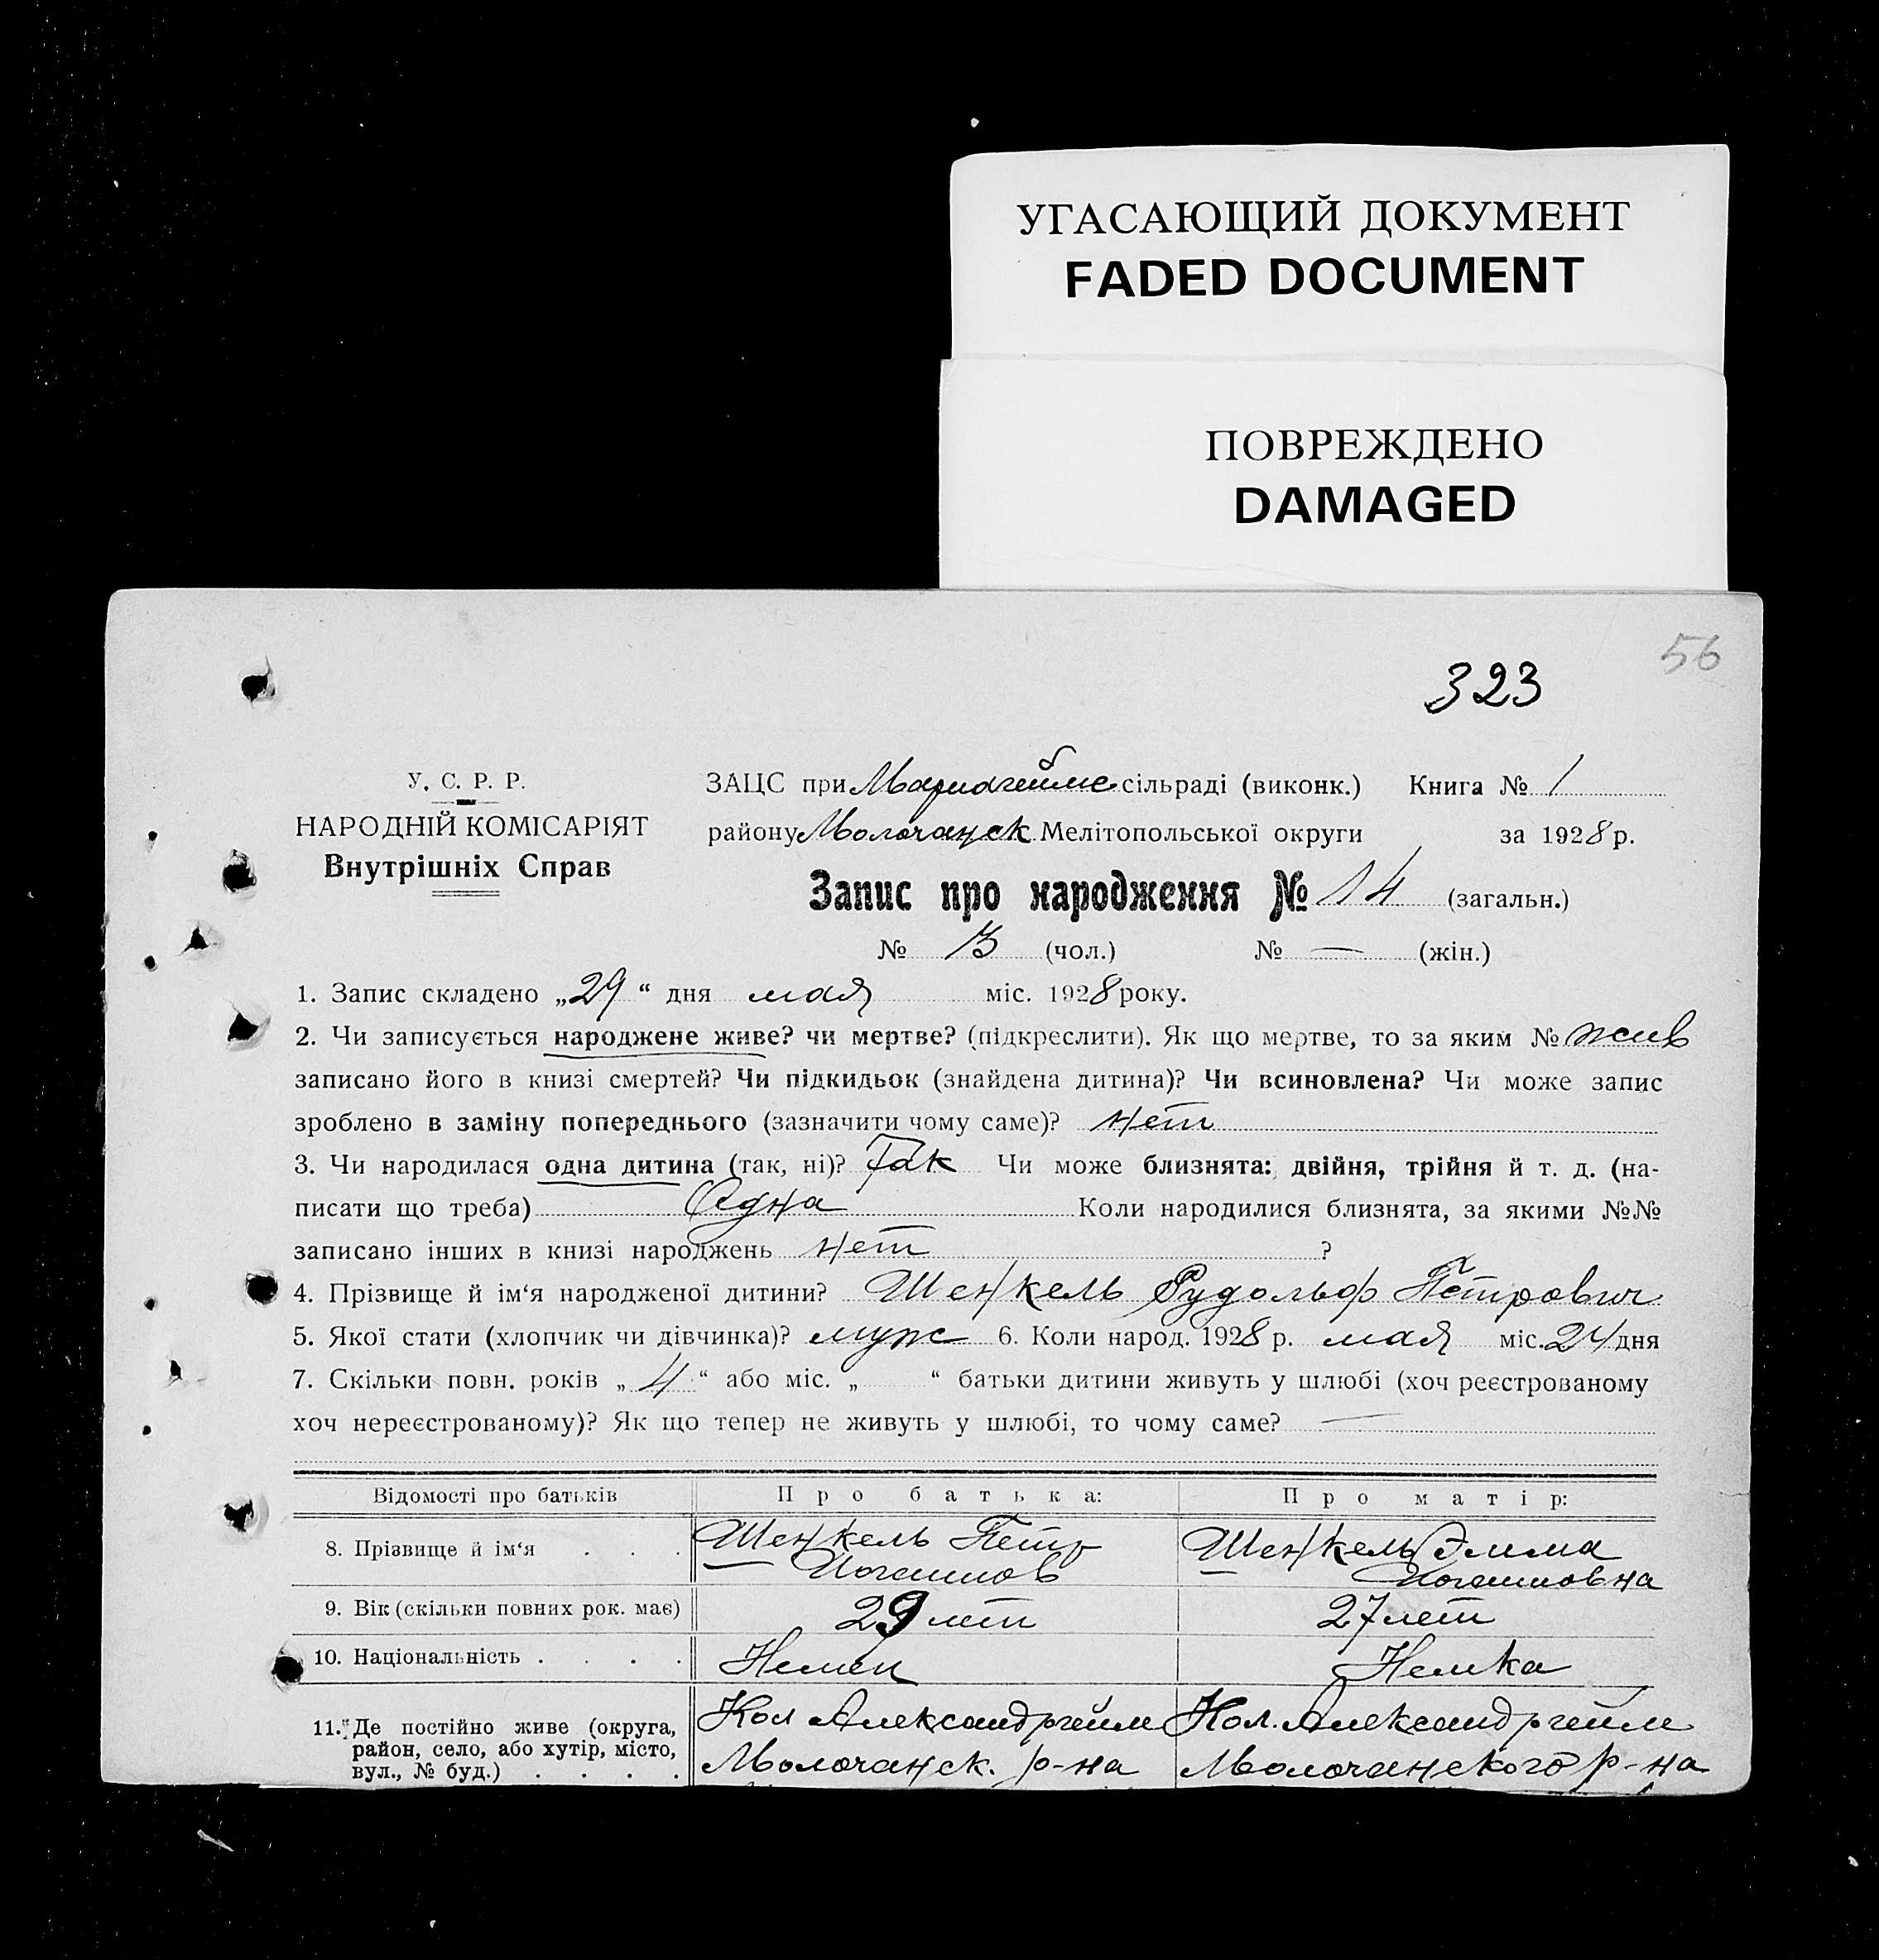 УГАСАЮЩИЙ ДОКУМЕНТ
FADED DOCUMENT
ПОВРЕЖДЕНО
DAMAGED
56
323
У. С. Р. Р.
НАРОДНІЙ КОМІСАРІЯТ
Внутрішніх Справ
ЗАЦС при Мариагейме сільраді (виконк.) Книга № 1
району Молочанск Мелітопольської округи за 1928 р.
Запис про народження № 14 (загальн.)
№ 13 (чол.) № — (жін.)
1. Запис складено „29“ дня мая міс. 1928 року.
2. Чи записується народжене живе? чи мертве? (підкреслити). Як що мертве, то за яким № жив
записано його в книзі смертей? Чи підкидьок (знайдена дитина)? Чи всиновлена? Чи може запис
зроблено в заміну попереднього (зазначити чому саме)? нет
3. Чи народилася одна дитина (так, ні)? Так Чи може близнята: двійня, трійня й т. д. (на-
писати що треба) Одна Коли народилися близнята, за якими №№
записано інших в книзі народжень нет ?
4. Прізвище й ім‘я народженої дитини? Шенкель Рудольф Петрович
5. Якої стати (хлопчик чи дівчинка)? муж 6. Коли народ. 1928 р. мая міс. 24 дня
7. Скільки повн. років „4“ або міс. „ “ батьки дитини живуть у шлюбі (хоч реєстрованому
хоч нереєстрованому)? Як що тепер не живуть у шлюбі, то чому саме? —
Відомості про батьків Про батька: Про матір:
8. Прізвище й ім‘я Шенкель Петр Шенкель Эмма
Иоганнов Иоганновна
9. Вік (скільки повних рок. має) 29 лет 27 лет
10. Національність Немец Немка
11. Де постійно живе (округа, Кол Александргейм Кол. Александргейм
район, село, або хутір, місто, Молочанск. р-на Молочанского р-на
вул., № буд.)